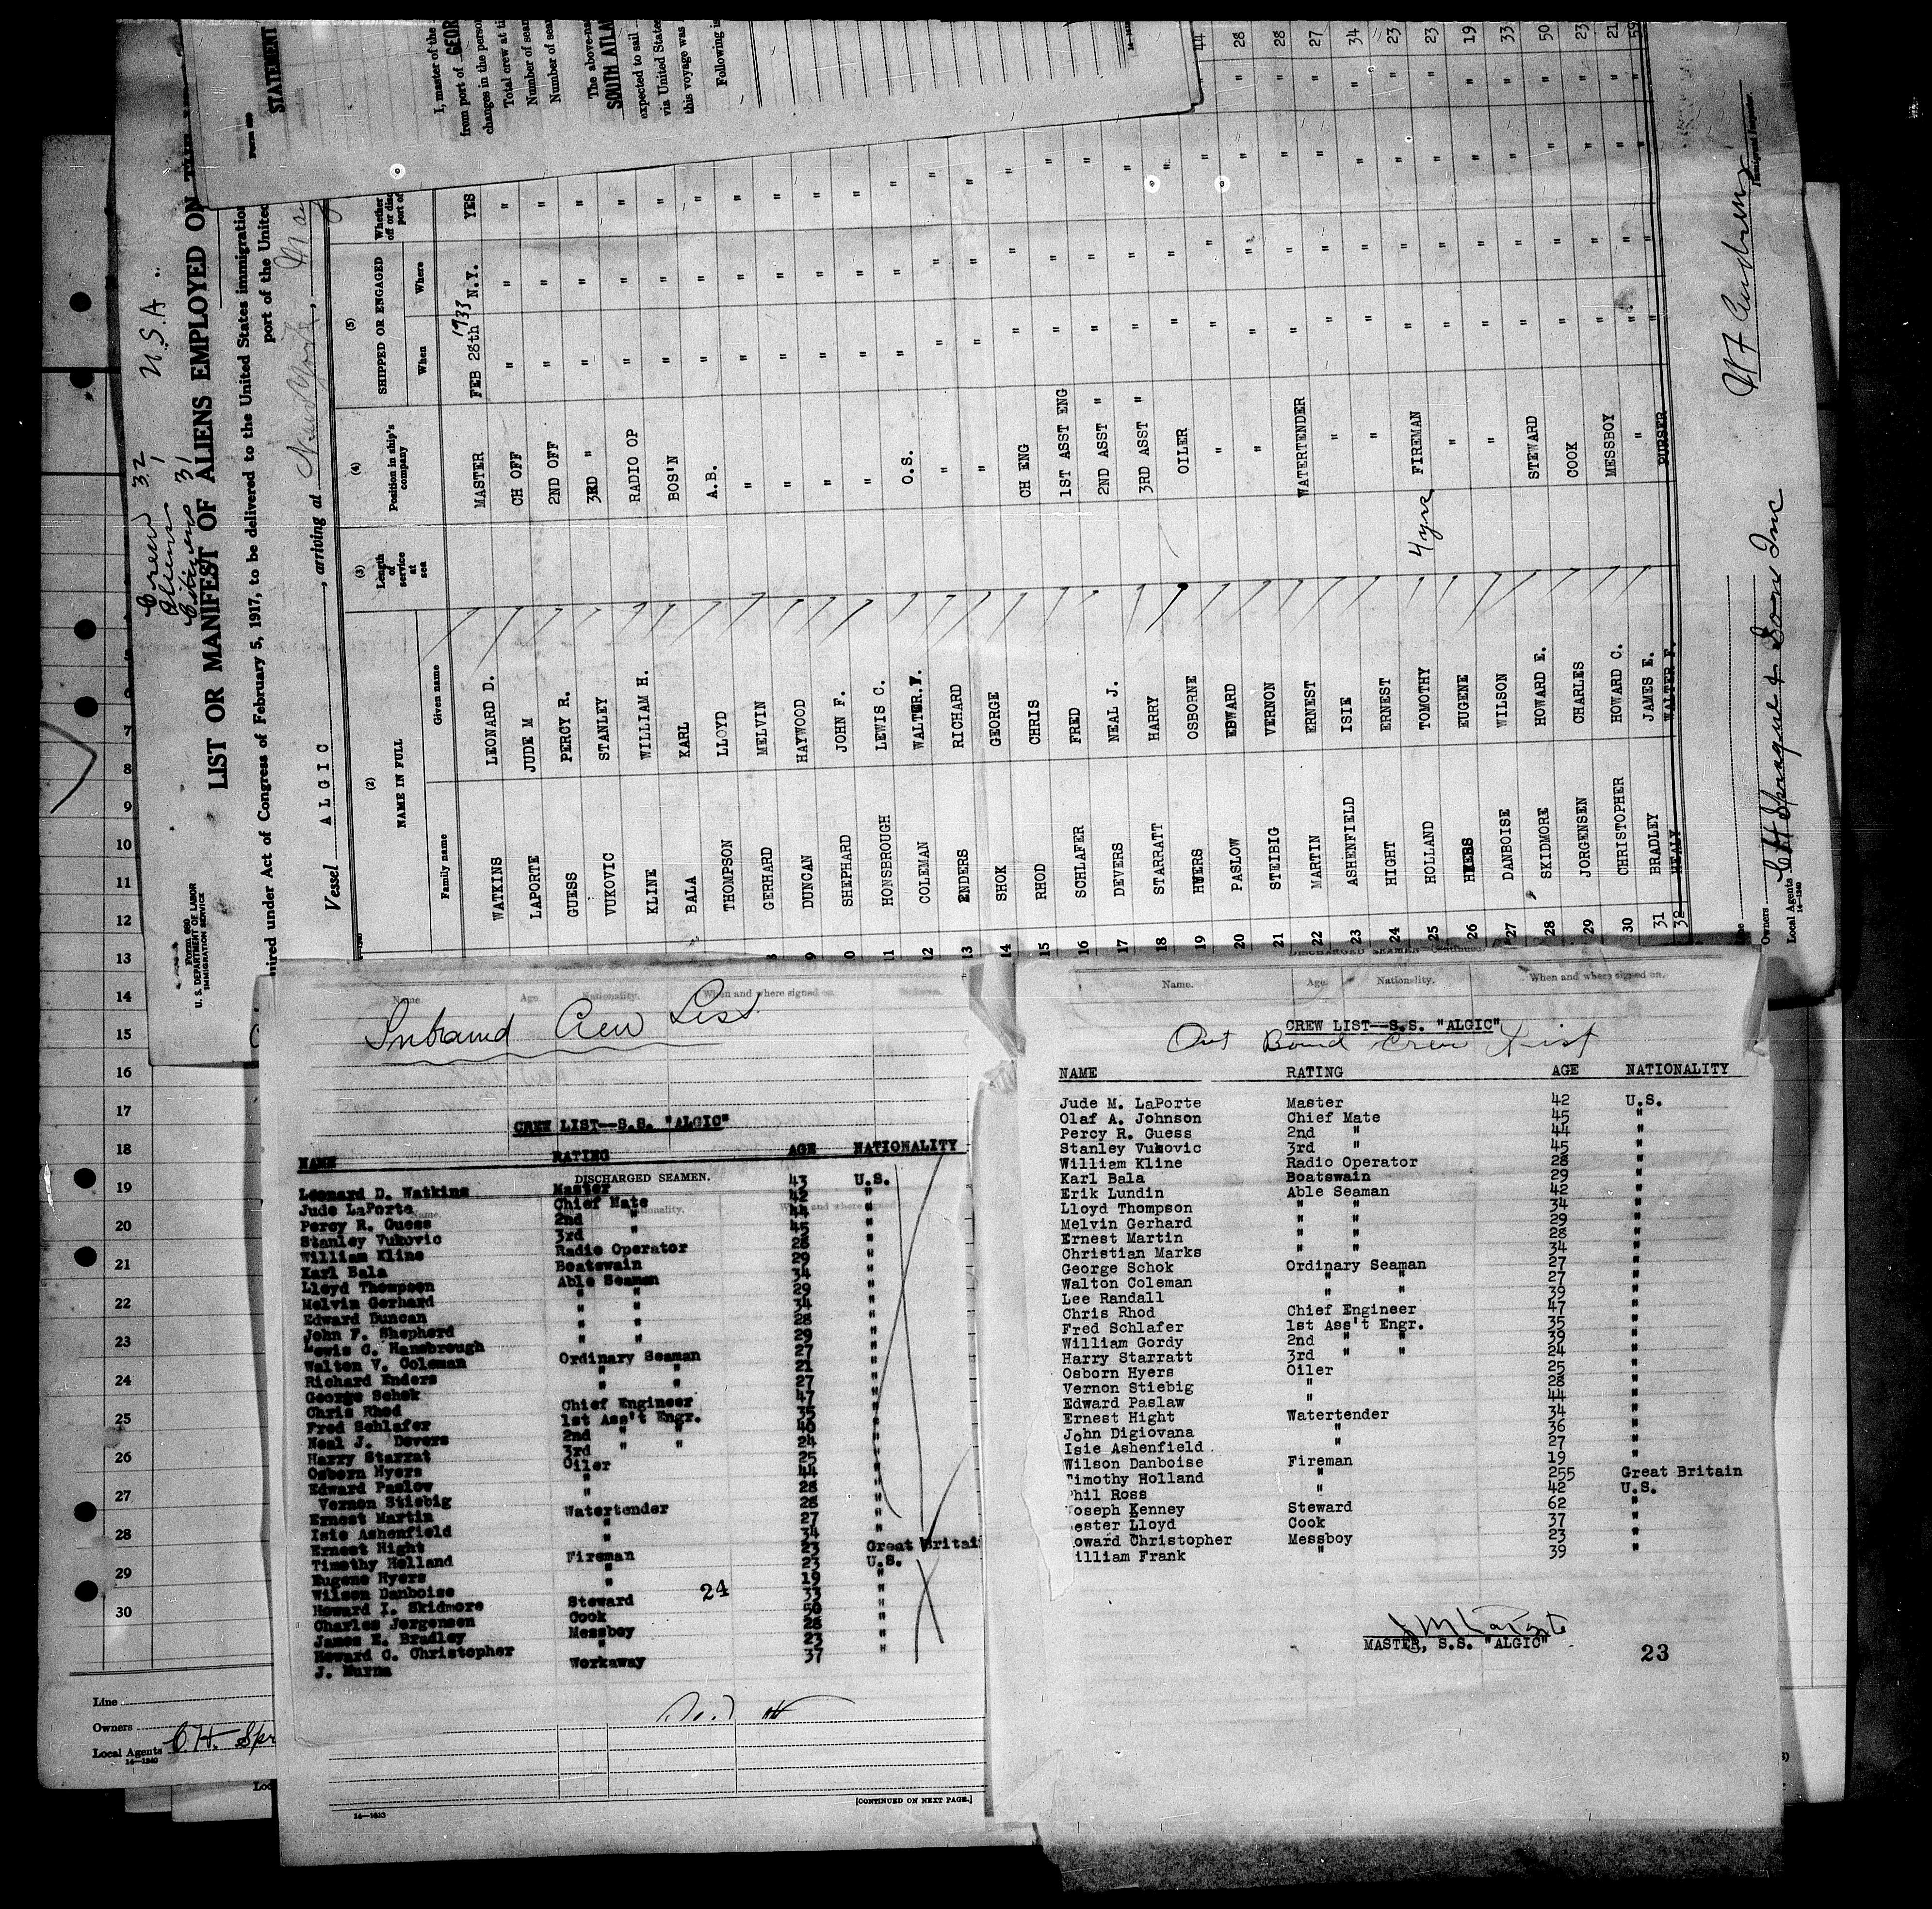 Crew 32
Aliens 1
Citizens 31
U.S.A.
Form 680
U. S. DEPARTMENT OF LABOR
IMMIGRATION SERVICE
LIST OR MANIFEST OF ALIENS EMPLOYED ON
uired under Act of Congress of February 5, 1917, to be delivered to the United States immigration
port of the United
Vessel ALGIC, arriving at New York,
(2) (3) (4) (5)
NAME IN FULL Length of service at sea Position in ship's company SHIPPED OR ENGAGED Whether
Family name Given name When Where
WATKINS LEONARD D. MASTER FEB 28th 1933 N.Y. YES
LAPORTE JUDE M CH OFF " " "
GUESS PERCY R. 2ND OFF " " "
VUKOVIC STANLEY 3RD " " " "
KLINE WILLIAM H. RADIO OP " " "
BALA KARL BOS'N " " "
THOMPSON LLOYD A.B. " " "
8 GERHARD MELVIN " " " "
9 DUNCAN HAYWOOD " " " "
0 SHEPHARD JOHN F. " " " "
11 HONSBROUGH LEWIS C. " " " "
12 COLEMAN WALTER.F. O.S. " " "
13 ENDERS RICHARD " " " "
14 SHOK GEORGE " " " "
15 RHOD CHRIS CH ENG " " "
16 SCHLAFER FRED 1ST ASST ENG " " "
17 DEVERS NEAL J. 2ND ASST " " " "
18 STARRATT HARRY 3RD ASST " " " "
19 HYERS OSBORNE OILER " " " 44
20 PASLOW EDWARD " " " " " 28
21 STEIBIG VERNON " " " " " 28
22 MARTIN ERNEST WATERTENDER " " " " 27
23 ASHENFIELD ISIE " " " " " 34
24 HIGHT ERNEST " " " " " 23
25 HOLLAND TOMOTHY 4 yrs FIREMAN " " " " 23
26 HYERS EUGENE " " " " " 19
27 DANBOISE WILSON " " " " " 33
28 SKIDMORE HOWARD E. STEWARD " " " " 50
29 JORGENSEN CHARLES COOK " " " " 23
30 CHRISTOPHER HOWARD C. MESSBOY " " " " 21
31 BRADLEY JAMES E. " " " " " 59
32 HEALY WALTER F. PURSER
Owners
Local Agents C H Sprague & Son Inc
14-1240
Immigrant Inspector.
STATEMENT
I, master of the
from port of GEOR
changes in the perso
Total crew at ti
Number of sea
Number of sea
The above-na
SOUTH ATLA
expected to sail
via United State
this voyage was
Following i
7
8
9
10
11
12
13
14
15
16
17
18
19
20
21
22
23
24
25
26
27
28
29
30
Line
Owners
Local Agents C.H. Spr
14-1240
Name Age. Nationality. When and where signed on.
Inbound Crew List
CREW LIST--S.S. "ALGIC"
NAME RATING AGE NATIONALITY
DISCHARGED SEAMEN.
Leonard D. Watkins Master 43 U.S.
Jude LaPorte Chief Mate 42 "
Percy R. Guess 2nd " 44 "
Stanley Vukovic 3rd " 45 "
William Kline Radio Operator 28 "
Karl Bala Boatswain 29 "
Lloyd Thompson Able Seaman 34 "
Melvin Gerhard " " 29 "
Edward Duncan " " 34 "
John F. Shepherd " " 28 "
Lewis C. Hansbrough " " 29 "
Walton V. Coleman Ordinary Seaman 27 "
Richard Enders " " 21 "
George Schok " " 27 "
Chris Rhod Chief Engineer 47 "
Fred Schlafer 1st Ass't Engr. 35 "
Neal J. Devers 2nd " " 40 "
Harry Starrat 3rd " " 24 "
Osborn Hyers Oiler 25 "
Edward Paslow " 44 "
Vernon Stiebig " 28 "
Ernest Martin Watertender 28 "
Isie Ashenfield " 27 "
Ernest Hight " 34 "
Timothy Holland Fireman 23 Great Britai
Eugene Hyers " 23 U.S.
Wilson Danboise " 19 "
Howard I. Skidmore Steward 33 "
Charles Jorgensen Cook 50 "
James E. Bradley Messboy 28 "
Howard C. Christopher " 23 "
J. Murna Workaway 37 "
24
[CONTINUED ON NEXT PAGE.]
14-1813
DISCHARGED SEAMEN—Continued
Name. Age. Nationality. When and where signed on.
CREW LIST--S.S. "ALGIC"
Out Bound Crew List
NAME RATING AGE NATIONALITY
Jude M. LaPorte Master 42 U.S.
Olaf A. Johnson Chief Mate 45 "
Percy R. Guess 2nd " 44 "
Stanley Vukovic 3rd " 45 "
William Kline Radio Operator 28 "
Karl Bala Boatswain 29 "
Erik Lundin Able Seaman 42 "
Lloyd Thompson " " 34 "
Melvin Gerhard " " 29 "
Ernest Martin " " 28 "
Christian Marks " " 34 "
George Schok Ordinary Seaman 27 "
Walton Coleman " " 27 "
Lee Randall " " 39 "
Chris Rhod Chief Engineer 47 "
Fred Schlafer 1st Ass't Engr. 35 "
William Gordy 2nd " " 39 "
Harry Starratt 3rd " " 24 "
Osborn Hyers Oiler 25 "
Vernon Stiebig " 28 "
Edward Paslaw " 44 "
Ernest Hight Watertender 34 "
John Digiovana " 36 "
Isie Ashenfield " 27 "
Wilson Danboise Fireman 19 "
Timothy Holland " 255 Great Britain
Phil Ross " 42 U.S.
Joseph Kenney Steward 62 "
ester Lloyd Cook 37 "
oward Christopher Messboy 23 "
illiam Frank " 39 "
J M LaPorte
MASTER, S.S. "ALGIC"
23